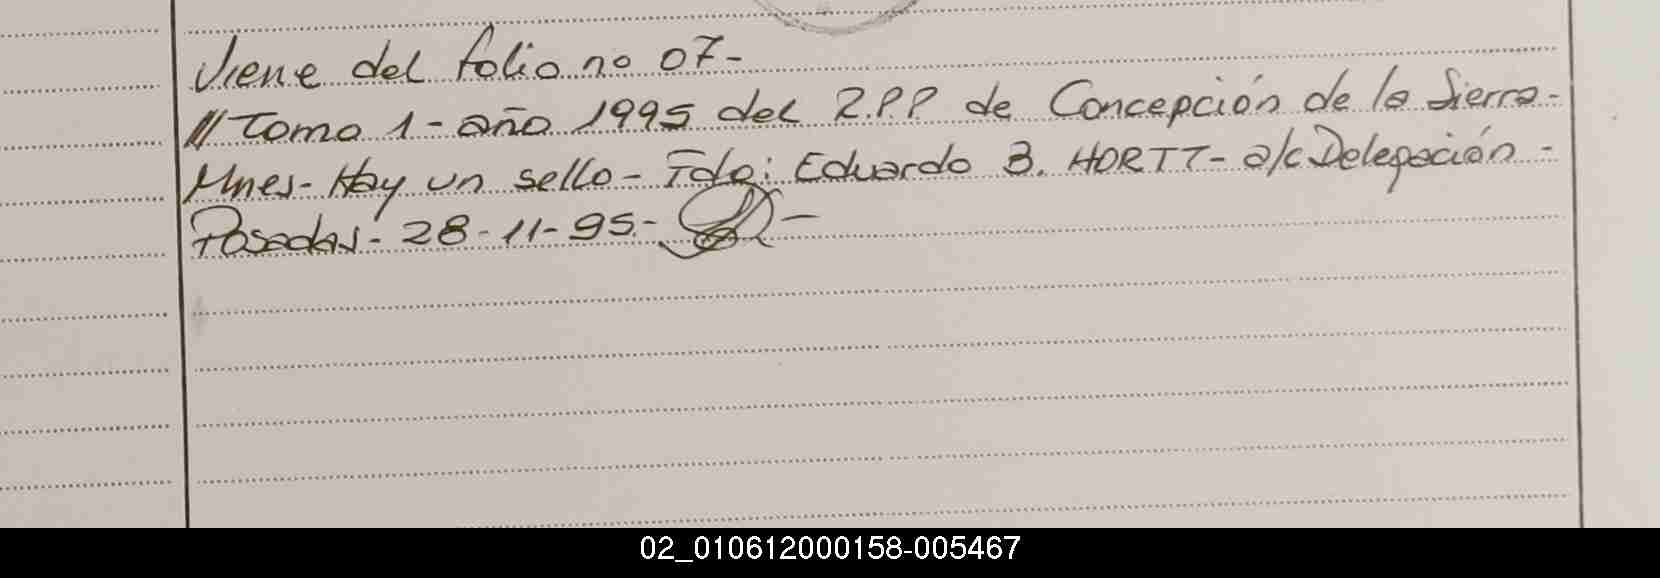 Viene del folio no 07-
///Tomo 1- año 1995 del R.P.P. de Concepción de la Sierra-
Mnes- Hay un sello- Fdo: Eduardo B. HORTT- a/c Delegación-
Posadas- 28-11-95-
02_010612000158-005467